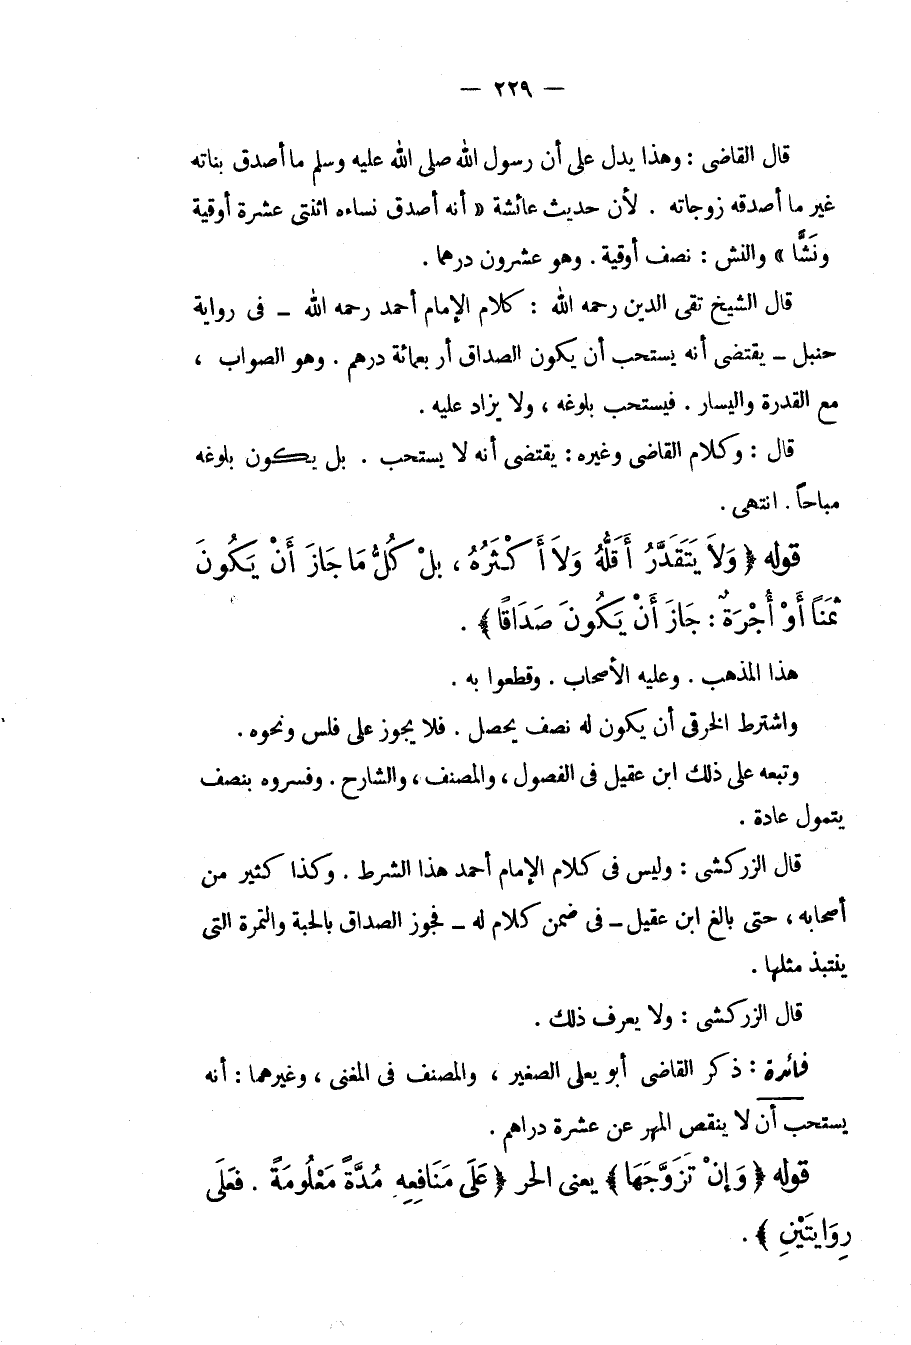 — ٢٢٩ —
قال القاضى : وهذا يدل على أن رسول الله صلى الله عليه وسلم ما أصدق بناته
غير ما أصدقه زوجاته . لأن حديث عائشة « أنه أصدق نساءه اثنتى عشرة أوقية
ونَشًّا » والنش : نصف أوقية . وهو عشرون درهما .
قال الشيخ تقى الدين رحمه الله : كلام الإمام أحمد رحمه الله ــ فى رواية
حنبل ــ يقتضى أنه يستحب أن يكون الصداق أربعمائة درهم . وهو الصواب ،
مع القدرة واليسار . فيستحب بلوغه ، ولا يزاد عليه .
قال : وكلام القاضى وغيره : يقتضى أنه لا يستحب . بل يكون بلوغه
مباحاً . انتهى .
قوله ﴿ وَلاَ يَتَقَدَّرُ أَقَلُّهُ وَلاَ أَكْثَرُهُ ، بلْ كُلُّ مَا جَازَ أَنْ يَكُونَ
ثمَنَاً أَوْ أُجْرَةً : جَازَ أَنْ يَكُونَ صَدَاقًا ﴾ .
هذا المذهب . وعليه الأصحاب . وقطعوا به .
واشترط الخرقى أن يكون له نصف يحصل . فلا يجوز على فلس ونحوه .
وتبعه على ذلك ابن عقيل فى الفصول ، والمصنف ، والشارح . وفسروه بنصف
يتمول عادة .
قال الزركشى : وليس فى كلام الإمام أحمد هذا الشرط . وكذا كثير من
أصحابه ، حتى بالغ ابن عقيل ــ فى ضمن كلام له ــ فجوز الصداق بالحبة والتمرة التى
ينتبذ مثلها .
قال الزركشى : ولا يعرف ذلك .
فائدة : ذكر القاضى أبو يعلى الصغير ، والمصنف فى المغنى ، وغيرهما : أنه
يستحب أن لا ينقص المهر عن عشرة دراهم .
قوله ﴿ وَإِنْ تَزَوَّجَهَا ﴾ يعنى الحر ﴿ عَلَى مَنَافِعِهِ مُدَّةً مَعْلُومَةً . فعَلَى
رِوَايتَيْنِ ﴾ .